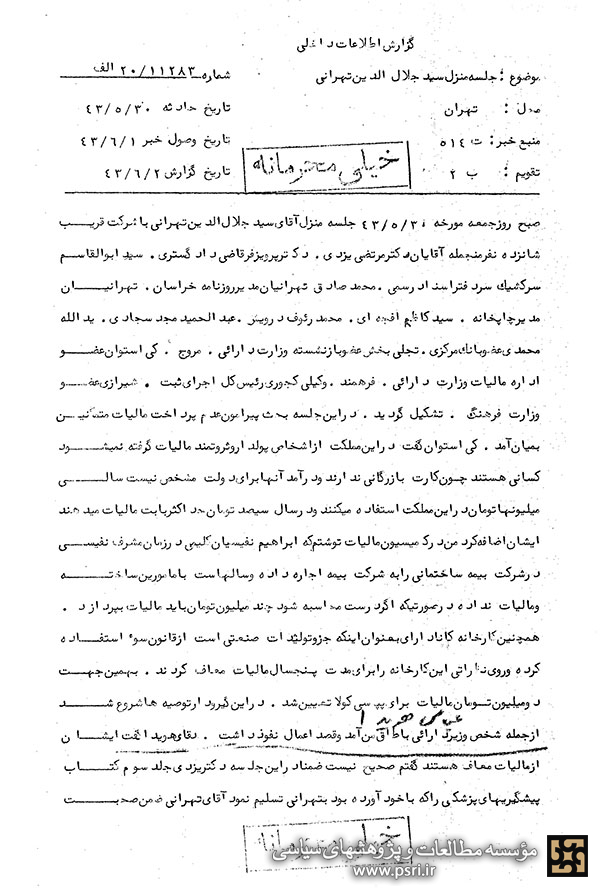 گزارش اطلاعات داخلی
موضوع : جلسه منزل سید جلال الدین تهرانی
شماره ۲۰/۱۱۲۸۳ الف
محل : تهران
تاریخ حادثه ۴۳/۵/۳۰
منبع خبر : ت ۵۱۴
تاریخ وصول خبر ۴۳/۶/۱
تقویم : ب ۲
تاریخ گزارش ۴۳/۶/۲
خیلی محرمانه
صبح روز جمعه مورخه ۴۳/۵/۳۰ جلسه منزل آقای سید جلال الدین تهرانی با شرکت قریب
شانزده نفر منجمله آقایان دکتر مرتضی یزدی . دکتر پرویز فرقاضی دادگستری . سید ابوالقاسم
سرکشیک سردفتر اسناد رسمی . محمد صادق تهرانیان مدیر روزنامه خراسان . تهرانیان
مدیر چاپخانه . سید کاظم افجه ای . محمد رئوف درویش . عبدالحمید مجد سجادی . یدالله
محمدی عضو بانک مرکزی . تجلی بخش عضو بازنشسته وزارت دارائی . مروج . کی استوان عضو
اداره مالیات وزارت دارائی . فرهمند . وکیلی کجوری رئیس کل اجرای ثبت . شیرازی عضو
وزارت فرهنگ . تشکیل گردید . در این جلسه بحث پیرامون عدم پرداخت مالیات متمکنین
بمیان آمد . کی استوان گفت در این مملکت از اشخاص پولدار و ثروتمند مالیات گرفته نمیشود
کسانی هستند چون کارت بازرگانی ندارند و درآمد آنها برای دولت مشخص نیست سالی
میلیونها تومان در این مملکت استفاده میکنند و در سال سیصد تومان حداکثر بابت مالیات میدهند
ایشان اضافه کرد من در کمیسیون مالیات نوشتم که ابراهیم نفیسیان کلیمی در زمان مشرف نفیسی
در شرکت بیمه ساختمانی را به شرکت بیمه اجاره داده و سالهاست با مامورین ساخته
و مالیات نداده در صورتیکه اگر درست محاسبه شود چند میلیون تومان باید مالیات بپردازد .
همچنین کارخانه کانادا رای بعنوان اینکه جزو تولیدات صنعتی است از قانون سوء استفاده
کرده و روی نظراتی این کارخانه را برای مدت پنجسال مالیات معاف کردند . بهمین جهت
دو میلیون تومان مالیات برای پپسی کولا تعیین شد . در این گیرودار توصیه ها شروع شد
از جمله شخص وزیر دارائی باطاق من آمد و قصد اعمال نفوذ داشت . آقای هویدا گفت ایشان
از مالیات معاف هستند گفتم صحیح نیست ضمنا در این جلسه دکتر یزدی جلد سوم کتاب
پیشگیریهای پزشکی را که با خود آورده بود بتهرانی تسلیم نمود آقای تهرانی ضمن صحبت
خیلی محرمانه
مؤسسه مطالعات و پژوهشهای سیاسی
www.psri.ir